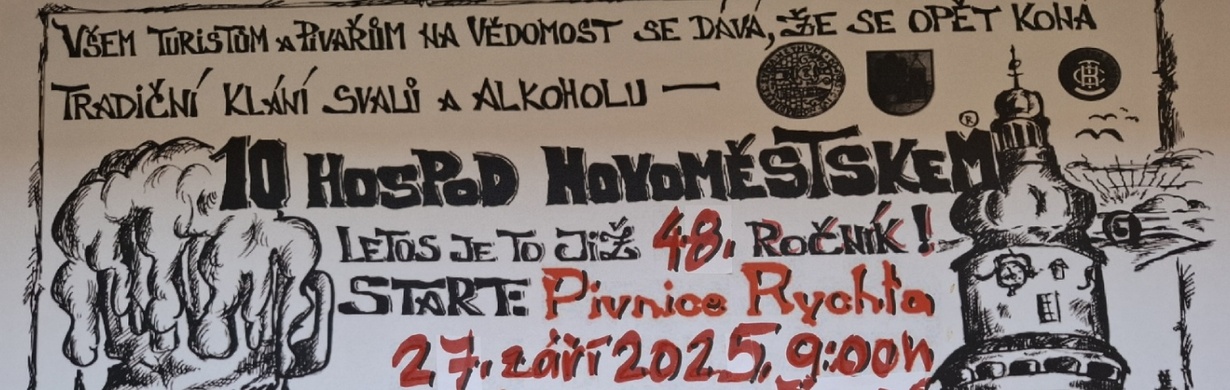 VŠEM TURISTŮM A PIVAŘŮM NA VĚDOMOST SE DÁVÁ, ŽE SE OPĚT KONÁ
TRADIČNÍ KLÁNÍ SVALŮ A ALKOHOLU —
10 HOSPOD NOVOMĚSTSKEM ®
LETOS JE TO JIŽ 48. ROČNÍK!
START: Pivnice Rychta
27. září 2025, 9:00h